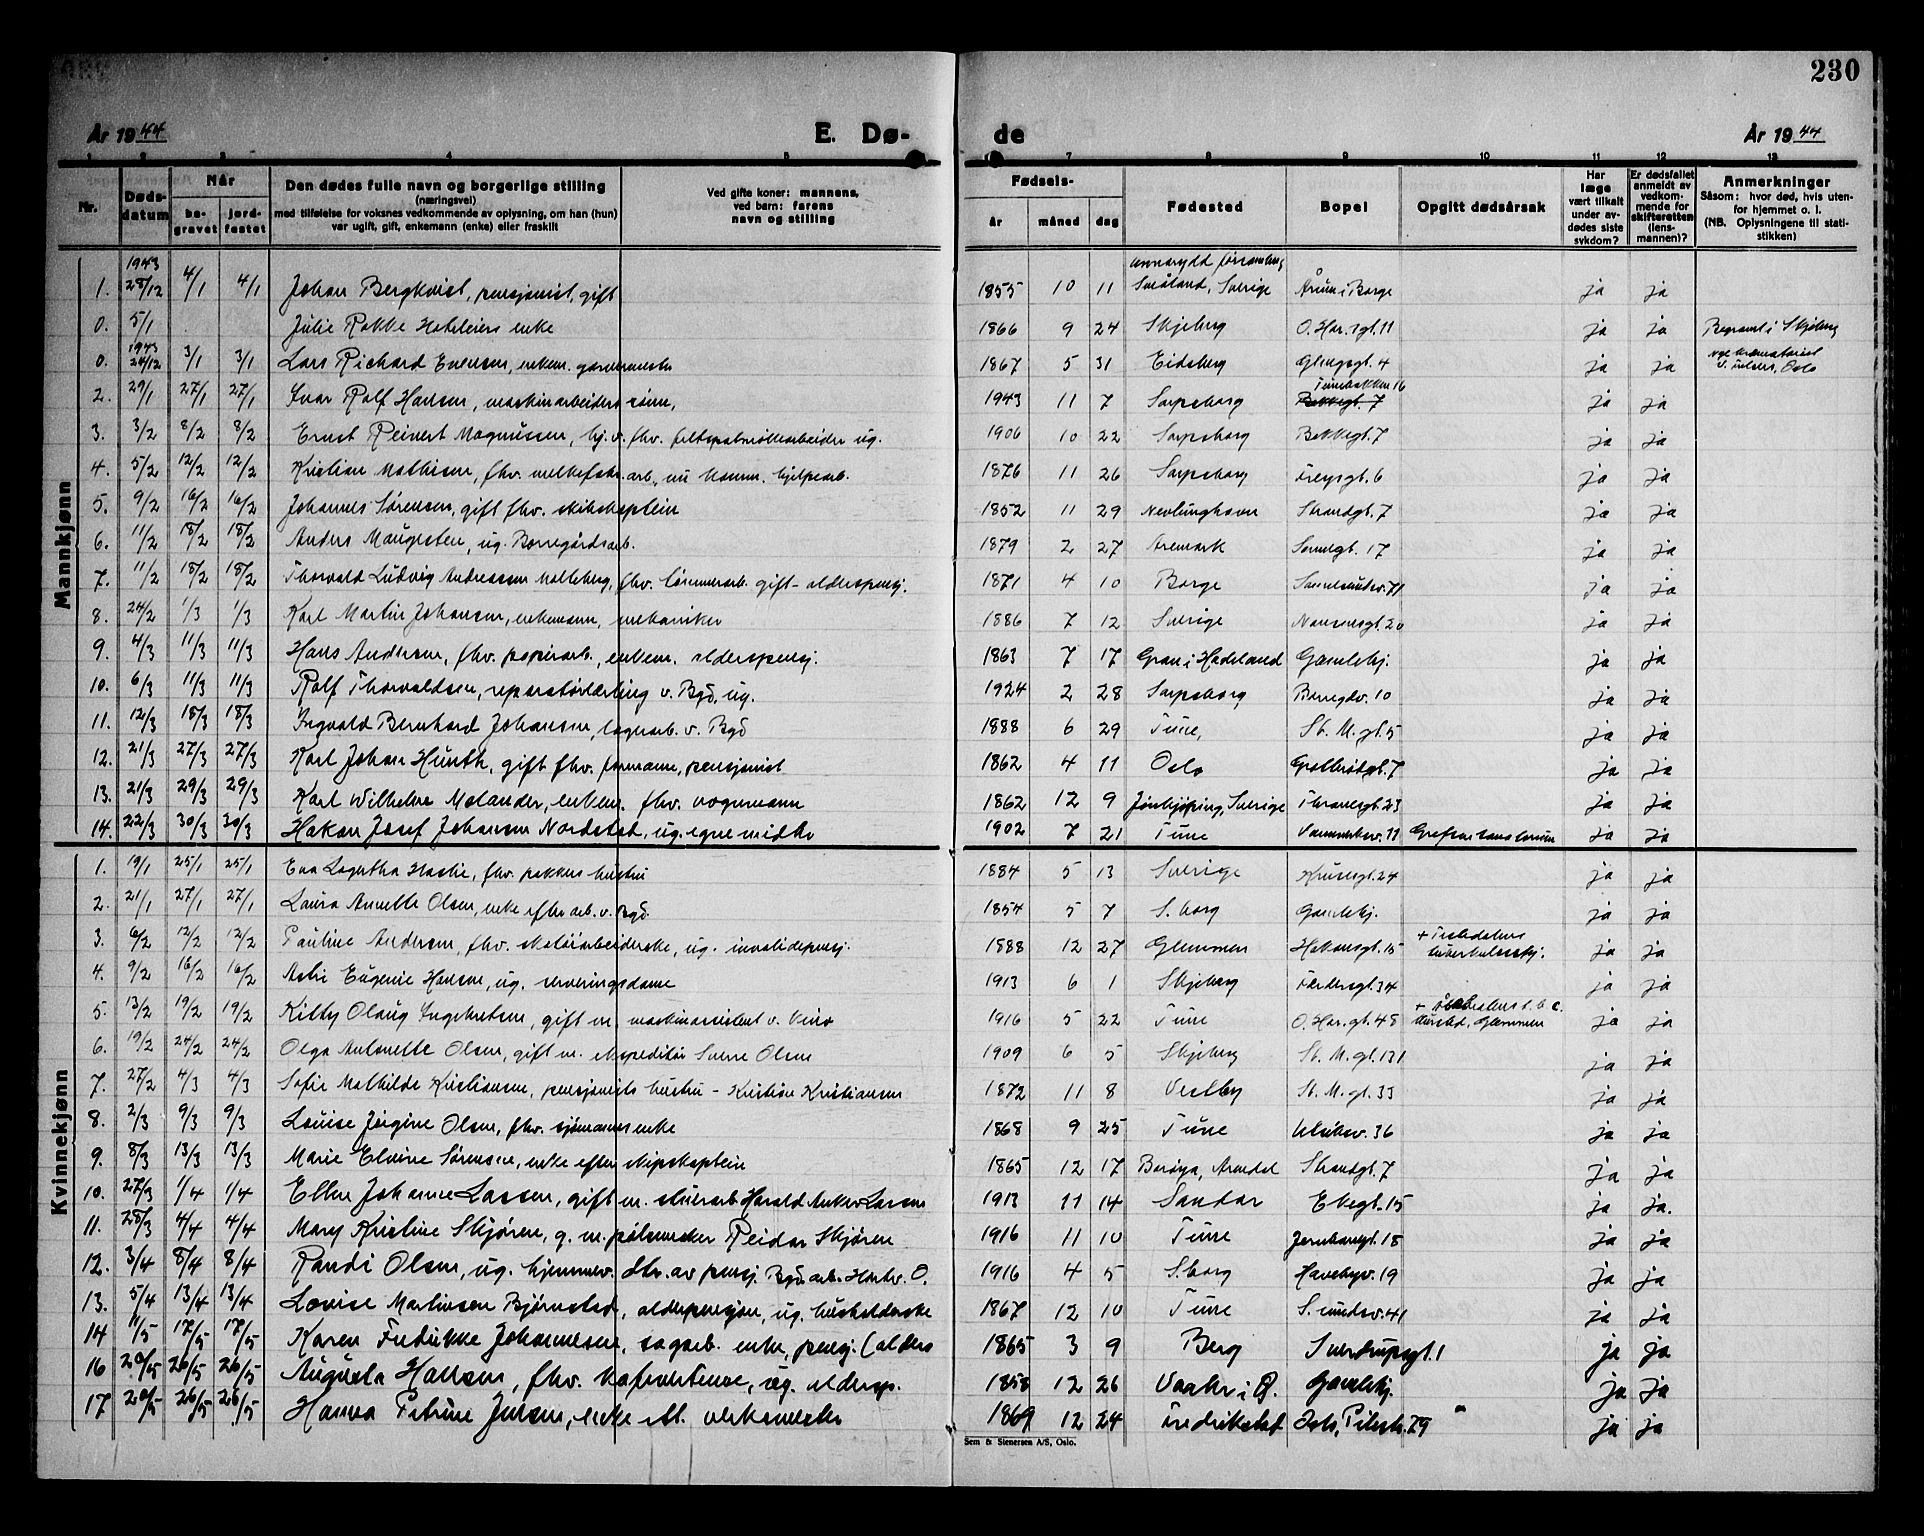 230
År 1944 E. Dø- de År 1944
1 2 3 4 5 7 8 9 10 11 12 13
Nr. Døds-datum Når be-gravet jord-festet Den dødes fulle navn og borgerlige stilling (næringsvei) med tilføielse for voksnes vedkommende av oplysning, om han (hun) var ugift, gift, enkemann (enke) eller fraskilt Ved gifte koner: mannens, ved barn: farens navn og stilling Fødsels- år måned dag Fødested Bopel Opgitt dødsårsak Har læge vært tilkalt under av-dødes siste sykdom? Er dødsfallet anmeldt av vedkom-mende for skifteretten (lens-mannen)? Anmerkninger Såsom: hvor død, hvis uten-for hjemmet o. l. (NB. Oplysningene til stati-stikken)
Mannkjønn
1. 1943 28/12 4/1 4/1 Johan Bergkvist, pensjonist, gift 1855 10 11 Småland, Sverige Årum i Borge ja ja
0. 5/1 Julie Rokke Hoteleiers enke 1866 9 24 Skjeberg O. Har. sgt. 11 ja ja Begravet i Skjeberg
0. 1943 24/12 3/1 3/1 Lars Richard Evensen, enkem. 1867 5 31 Eidsberg Glengsgt. 4 ja ja Nye krematoriet Oslo
2. 29/1 27/1 27/1 Ivar Rolf Hansen, maskinarbeiders sønn, 1943 11 7 Sarpsborg Tunebakken 16 Bekkegt. 7 ja ja
3. 3/2 8/2 8/2 Ernst Reinert Magnussen, hj.v. fhv. feltspatmøllearbeider ug. 1906 10 22 Sarpsborg Bekkegt. 7 ja ja
4. 5/2 12/2 12/2 Kristian Mathisen, fhv. melkefabr. arb., nu komm. hjelpearb. 1876 11 26 Sarpsborg Frøysgt. 6 ja ja
5. 9/2 16/2 16/2 Johannes Sørensen, gift fhv. skibskaptein 1852 11 29 Nevlunghavn Strandgt. 7 ja ja
6. 11/2 18/2 18/2 Anders Maugesten, ug. Borregårdsarb. 1879 2 27 Aremark 17 ja ja
7. 11/2 18/2 18/2 Thorvald Ludvig Andreassen Molleberg, fhv. tømmerarb. gift - alderspensj. 1871 4 10 Borge Sandesundsv. 71 ja ja
8. 24/2 1/3 1/3 Karl Martin Johansen, enkemann, mekaniker 1886 7 12 Sverige Nansensgt. 20 ja ja
9. 4/3 11/3 11/3 Hans Andersen, fhv. papirarb., enkem. alderspensj. 1863 7 17 Gran i Hadeland Gamlehj. ja ja
10. 6/3 11/3 11/3 Rolf Thorvaldsen, reparatørlærling v. Bgd, ug. 1924 2 28 Sarpsborg Borregdv. 10 ja ja
11. 12/3 18/3 18/3 Ingvald Bernhard Johansen, lagerarb. v. Bgd 1888 6 29 Tune, St. M. gt. 5 ja ja
12. 21/3 27/3 27/3 Karl Johan Hunth, gift fhv. formann, pensjonist 1862 4 11 Oslo 7 ja ja
13. 21/3 29/3 29/3 Karl Wilhelm Molander, enkem. fhv. vognmann 1862 12 9 Jönköping, Sverige Thranesgt. 23 ja ja
14. 22/3 30/3 30/3 Håkon Josef Johansen Nordstad, ug. egne midler 1902 7 21 Tune 11 Grefsen sanatorium ja ja
Kvinnekjønn
1. 19/1 25/1 25/1 Eva Lagertha fhv. pakkers hustru 1884 5 13 Sverige Krusesgt. 24 ja ja
2. 21/1 27/1 27/1 Laura Annette Olsen, enke efter arb. v. Bgd. 1854 5 7 S. borg Gamlehj. ja ja
3. 6/2 12/2 12/2 Pauline Andersen, fhv. skotøiarbeiderske, ug. invalidepensj. 1888 12 27 Glemmen Håkonsgt. 15 + tuberkulosehj. ja ja
4. 9/2 16/2 16/2 Eugenie Hansen, ug. serveringsdame 1913 6 1 Skjeberg Færdersgt. 34 ja ja
5. 13/2 19/2 19/2 Kitty Olaug Ingebretsen, gift m. maskinassistent v. 1916 5 22 Tune O. Har. gt. 48 + Glemmen ja ja
6. 19/2 24/2 24/2 Olga Antonette Olsen, gift m. ekspeditør Sverre Olsen 1909 6 5 Skjeberg St. M. gt. 131 ja ja
7. 27/2 4/3 4/3 Sofie Mathilde Kristiansen, pensjonists hustru - Kristian Kristiansen 1872 11 8 Vestby St. M. gt. 33 ja ja
8. 2/3 9/3 9/3 Louise Jørgine Olsen, fhv. sjømanns enke 1868 9 25 Tune 36 ja ja
9. 8/3 13/3 13/3 Marie Elvine Sørensen, enke efter skipskaptein 1865 12 17 Borøya, Arendal Strandgt. 7 ja ja
10. 27/3 1/4 1/4 Ellen Johanne Lassen, gift m. stuerarb Harald Anker Larsen 1913 11 14 Sandar Ekegt. 15 ja ja.
11. 28/3 4/4 4/4 Mary Kristine Skjøren, g. m. pølsemaker Reidar Skjøren 1916 11 10 Tune Jernbanegt. 18 ja ja
12. 3/4 8/4 8/4 Randi Olsen, ug. hjemmev. dtr. av pensj. Bgd. arb. O. 1916 4 5 S. borg Havebyv. 19 ja ja
13. 5/4 13/4 13/4 Lovise Martinsen Bjørnstad, alderspensjon, ug. husholderske 1867 12 10 Tune S. sundsv. 41 ja ja
14 11/5 17/5 17/5 Karen Fredrikke Johannesen, sagarb. enke, pensj. (alders 1865 3 9 Berg Sverdrupsgt. 1 ja ja
16 20/5 26/5 26/5 Augusta Hansen, fhv. kafevertinne, ug. aldersp. 1858 12 26 Vaaler i Ø. Gamlehj. ja ja
17 20/5 26/5 26/5 Hanna Petrine Jensen, enke ett. verksmester 1869 12 24 Fredrikstad 79 ja ja
Sem & Stenersen A/S, Oslo.